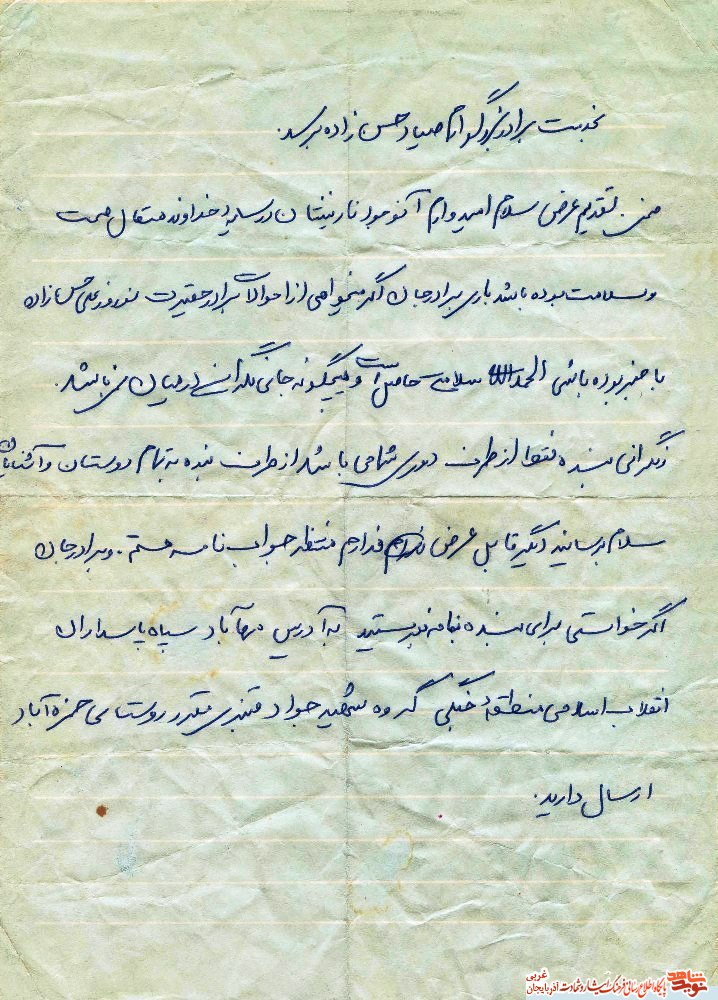 بخدمت برادر بزرگوارم صیاد حسن زاده برسد.
ضمن تقدیم عرض سلام امیدوارم آن وجود نازنینتان در سایه خداوند متعال صحت
و سلامت بوده باشد باری برادر جان اگر میخواهی از احوالات برادر حقیرت نوروزعلی حسن زاده
با خبر بوده باشی الحمدالله سلامتی حاصل است و هیچگونه جای نگرانی در میان نمی باشد.
نگرانی بنده فقط از طرف دوری شما می باشد از طرف بنده به تمام دوستان و آشنایان
سلام برسانید دیگر قابل عرض ندارم منتظر جواب نامه هستم. و برادر جان
اگر خواستی برای بنده نامه بنویستید به آدرس مهاباد سپاه پاسداران
انقلاب اسلامی منطقه جنگی گروه شهید جواد قنبری مقدر روستای حمزه آباد
ارسال دارید.
نوید شاهد
پایگاه اطلاع رسانی فرهنگ ایثار و شهادت آذربایجان غربی